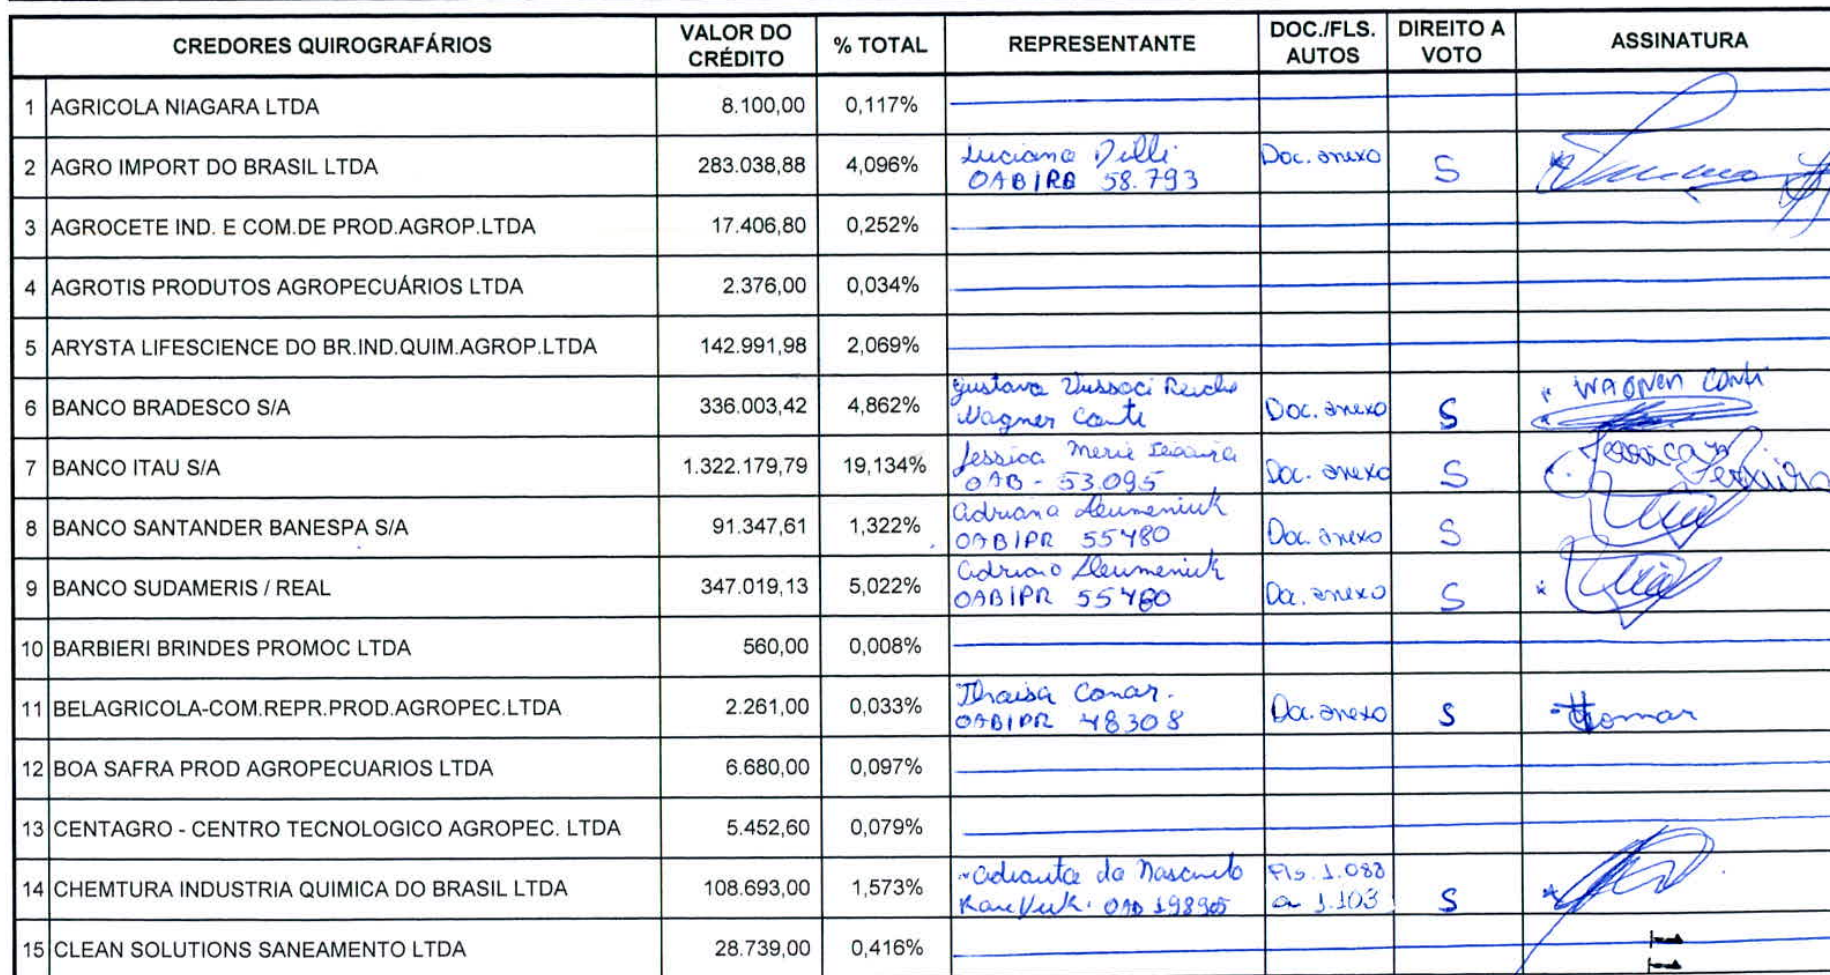 CREDORES QUIROGRAFÁRIOS VALOR DO CRÉDITO % TOTAL REPRESENTANTE DOC./FLS. AUTOS DIREITO A VOTO ASSINATURA
1 AGRICOLA NIAGARA LTDA 8.100,00 0,117%
2 AGRO IMPORT DO BRASIL LTDA 283.038,88 4,096% Luciana Dilli Doc. anexo S
58.793
3 AGROCETE IND. E COM.DE PROD.AGROP.LTDA 17.406,80 0,252%
4 AGROTIS PRODUTOS AGROPECUÁRIOS LTDA 2.376,00 0,034%
5 ARYSTA LIFESCIENCE DO BR.IND.QUIM.AGROP.LTDA 142.991,98 2,069%
6 BANCO BRADESCO S/A 336.003,42 4,862% Gustavo Doc. anexo S WAGNER Conti
Wagner Conti
7 BANCO ITAU S/A 1.322.179,79 19,134% Jessica Doc. anexo S Jessica
OAB - 53.095
8 BANCO SANTANDER BANESPA S/A 91.347,61 1,322% Adriana Doc. anexo S
OAB/PR 55480
9 BANCO SUDAMERIS / REAL 347.019,13 5,022% Doc. anexo S
OAB/PR 55480
10 BARBIERI BRINDES PROMOC LTDA 560,00 0,008%
11 BELAGRICOLA-COM.REPR.PROD.AGROPEC.LTDA 2.261,00 0,033% Thaisa Comar. Doc. anexo S
OAB/PR 48308
12 BOA SAFRA PROD AGROPECUARIOS LTDA 6.680,00 0,097%
13 CENTAGRO - CENTRO TECNOLOGICO AGROPEC. LTDA 5.452,60 0,079%
14 CHEMTURA INDUSTRIA QUIMICA DO BRASIL LTDA 108.693,00 1,573% Fls. 1.088 S
OAB 198905 a 1.103
15 CLEAN SOLUTIONS SANEAMENTO LTDA 28.739,00 0,416%